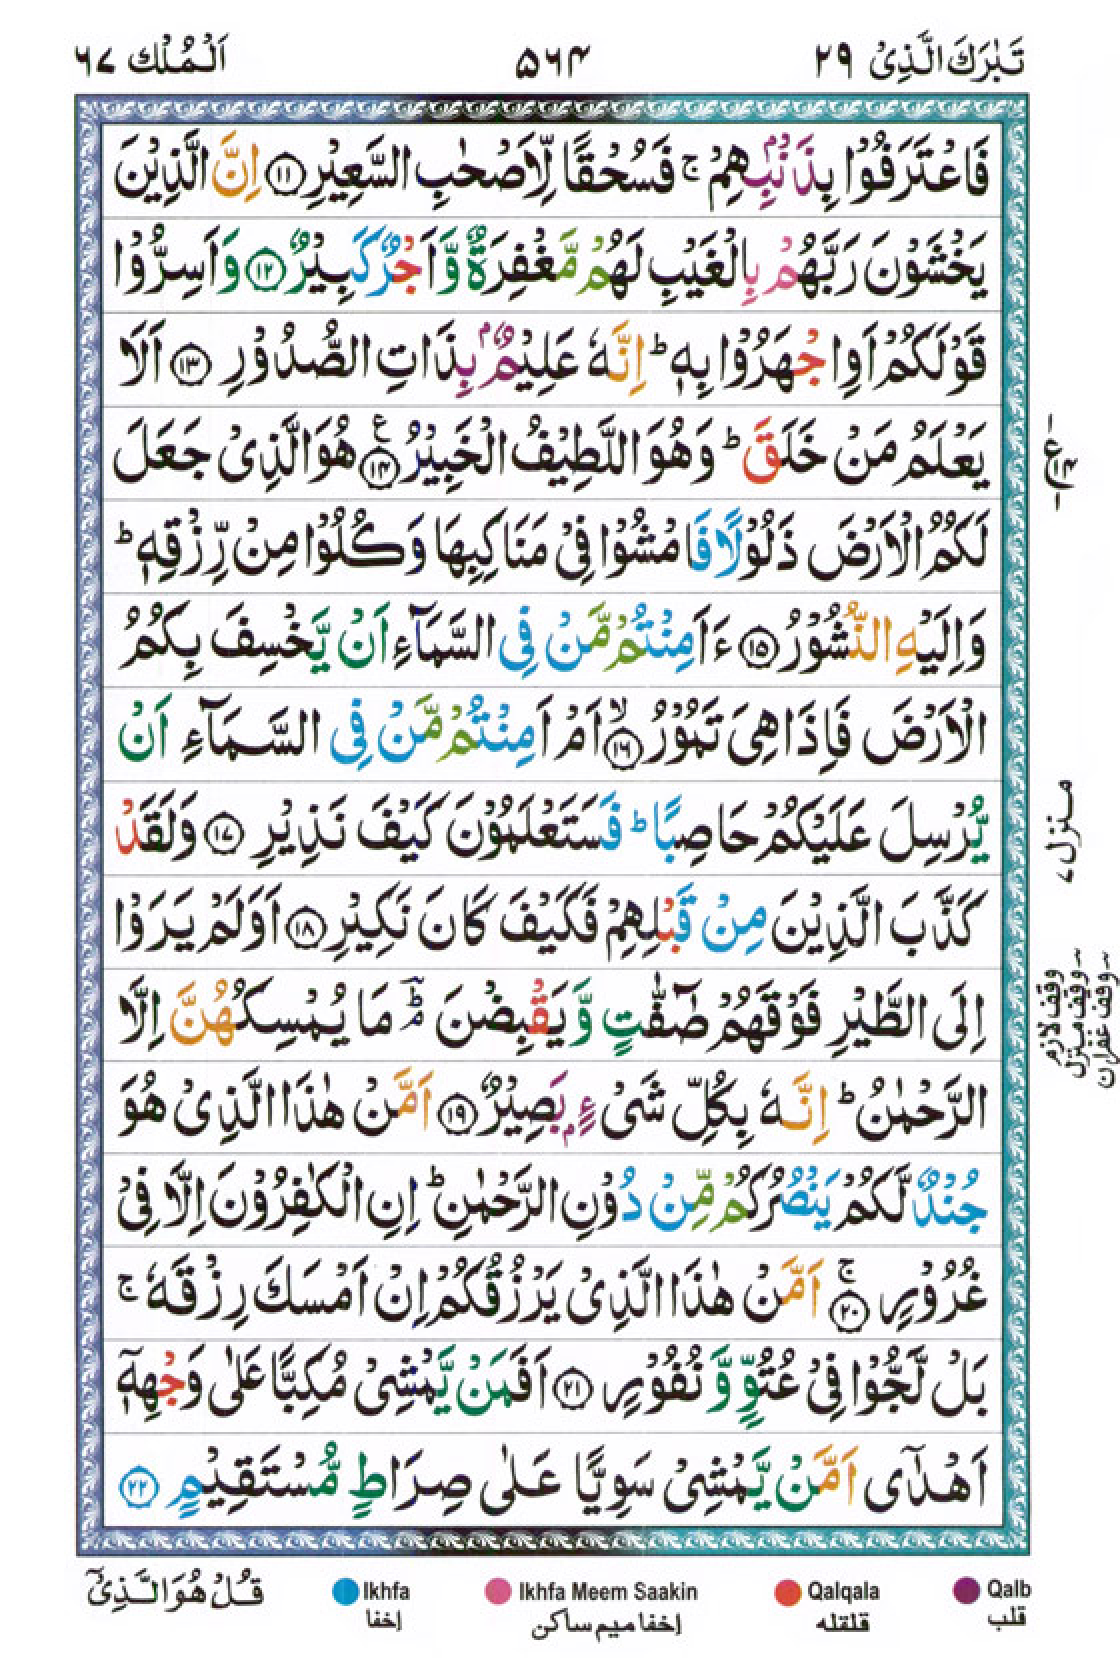 تَبٰرَكَ الَّذِیْ ۲۹
۵۶۴
اَلْمُلْك ۶۷
فَاعْتَرَفُوْا بِذَنْۢبِهِمْ ۚ فَسُحْقًا لِّاَصْحٰبِ السَّعِیْرِ ۝۱۱ اِنَّ الَّذِیْنَ
یَخْشَوْنَ رَبَّهُمْ بِالْغَیْبِ لَهُمْ مَّغْفِرَةٌ وَّاَجْرٌ كَبِیْرٌ ۝۱۲ وَاَسِرُّوْا
قَوْلَكُمْ اَوِاجْهَرُوْا بِهٖ ؕ اِنَّهٗ عَلِیْمٌۢ بِذَاتِ الصُّدُوْرِ ۝۱۳ اَلَا
یَعْلَمُ مَنْ خَلَقَ ؕ وَهُوَ اللَّطِیْفُ الْخَبِیْرُ ۝۱۴ع هُوَالَّذِیْ جَعَلَ
لَكُمُ الْاَرْضَ ذَلُوْلًا فَامْشُوْا فِیْ مَنَاكِبِهَا وَكُلُوْا مِنْ رِّزْقِهٖ ؕ
وَاِلَیْهِ النُّشُوْرُ ۝۱۵ ءَاَمِنْتُمْ مَّنْ فِی السَّمَآءِ اَنْ یَّخْسِفَ بِكُمُ
الْاَرْضَ فَاِذَا هِیَ تَمُوْرُ ۝۱۶ۙ اَمْ اَمِنْتُمْ مَّنْ فِی السَّمَآءِ اَنْ
یُّرْسِلَ عَلَیْكُمْ حَاصِبًا ؕ فَسَتَعْلَمُوْنَ كَیْفَ نَذِیْرِ ۝۱۷ وَلَقَدْ
كَذَّبَ الَّذِیْنَ مِنْ قَبْلِهِمْ فَكَیْفَ كَانَ نَكِیْرِ ۝۱۸ اَوَلَمْ یَرَوْا
اِلَی الطَّیْرِ فَوْقَهُمْ صٰٓفّٰتٍ وَّیَقْبِضْنَ ؔۘؕ مَا یُمْسِكُهُنَّ اِلَّا
الرَّحْمٰنُ ؕ اِنَّهٗ بِكُلِّ شَیْءٍۭ بَصِیْرٌ ۝۱۹ اَمَّنْ هٰذَا الَّذِیْ هُوَ
جُنْدٌ لَّكُمْ یَنْصُرُكُمْ مِّنْ دُوْنِ الرَّحْمٰنِ ؕ اِنِ الْكٰفِرُوْنَ اِلَّا فِیْ
غُرُوْرٍ ۝۲۰ۚ اَمَّنْ هٰذَا الَّذِیْ یَرْزُقُكُمْ اِنْ اَمْسَكَ رِزْقَهٗ ۚ
بَلْ لَّجُّوْا فِیْ عُتُوٍّ وَّنُفُوْرٍ ۝۲۱ اَفَمَنْ یَّمْشِیْ مُكِبًّا عَلٰی وَجْهِهٖۤ
اَهْدٰۤی اَمَّنْ یَّمْشِیْ سَوِیًّا عَلٰی صِرَاطٍ مُّسْتَقِیْمٍ ۝۲۲
منزل ۷
وقف لازم
وقف منزل
وقف غفران
Qalb
قلب
Qalqala
قلقله
Ikhfa Meem Saakin
إخفا ميم ساكن
Ikhfa
إخفا
قُلْ هُوَ الَّذِیْۤ